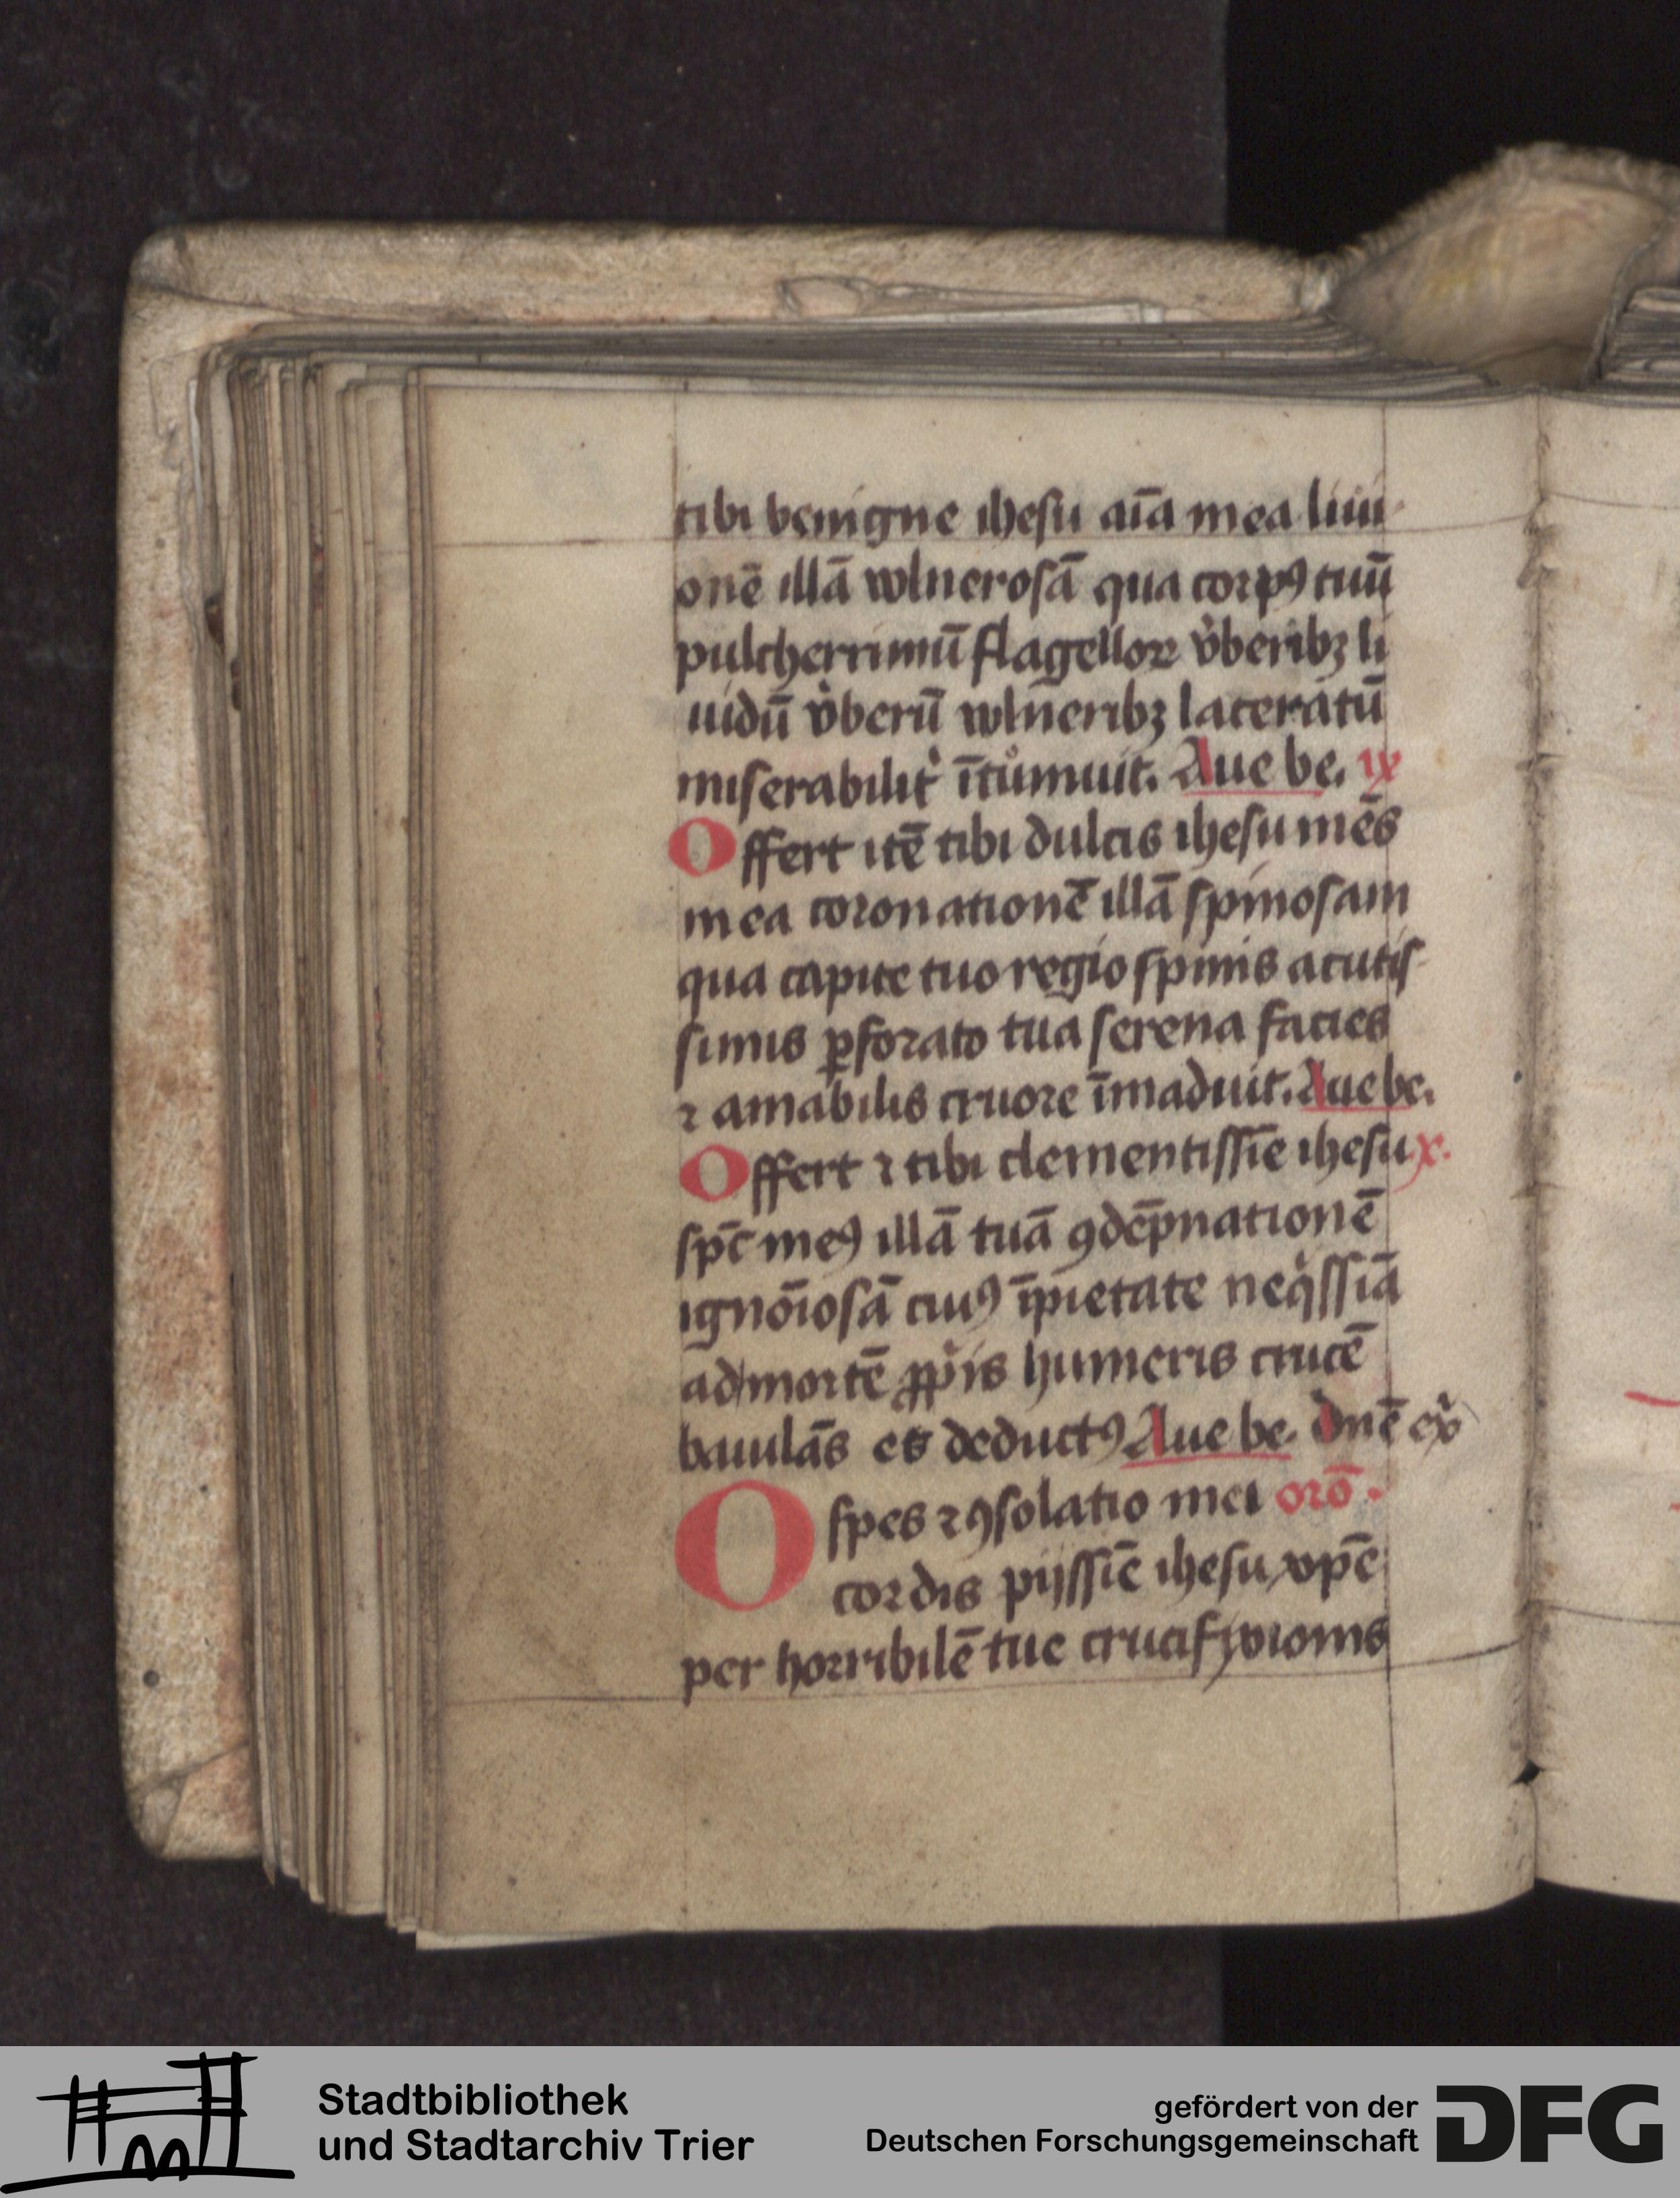 tibi benigne ihesu aīa mea liui
onē illā wlnerosā qua corpꝯ tuū
pulcherrimū flagelloꝝ v̾beribꝫ li
uidū v̾berū wlneribꝫ laceratū
miserabilit̾ ītumuit. Aue be. ix
Offert itē tibi dulcis ihesu mēs
mea coronationē illā spinosam
qua capite tuo regio spinis acutis
simis ꝑforato tua serena facies
⁊ amabilis cruore īmaduit. Aue be.
Offert ⁊ tibi clementissīe ihesu x.
spc̄ meꝯ illā tuā ꝯdēpnationē
ignōiosā cuiꝯ īpietate neqͥssīā
ad mortē ꝓpͥis humeris crucē
baiulās es deductꝯ Aue be. dnē ex̾
O spes ⁊ ꝯsolatio mei orō.
cordis pijssīe ihesu xp̄e
per horribilē tue crucifixionis
Stadtbibliothek
und Stadtarchiv Trier
gefördert von der
Deutschen Forschungsgemeinschaft
DFG